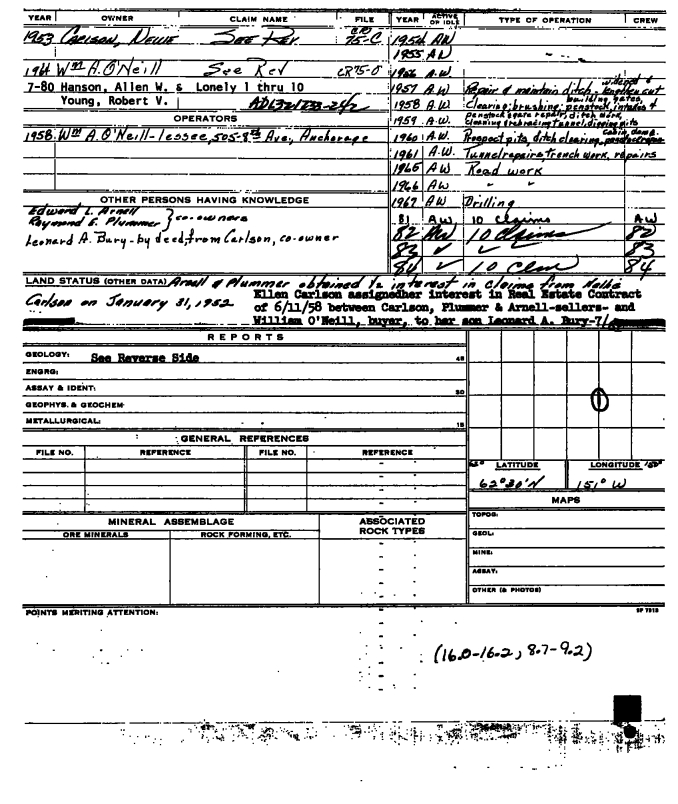 YEAR OWNER CLAIM NAME FILE
1953 Carlson, Nellie See Rev CR 75-C
1964 Wm A. O'Neill See Rev CR75-0
7-80 Hanson, Allen W. & Lonely 1 thru 10
Young, Robert V.
OPERATORS
1958 Wm A. O'Neill-lessee, 505-8th Ave, Anchorage
OTHER PERSONS HAVING KNOWLEDGE
Edward L. Arnell
Raymond E. Plummer } co-owners
Leonard A. Bury-by deed, from Carlson, co-owner
YEAR ACTIVE OR IDLE TYPE OF OPERATION CREW
1954 AW
1955 AW
1956 A.W.
1957 A.W. Repair & maintain ditch
1958 A.W. Clearing, brushing, penstock, intakes &
1959 A.W. penstock & gate repair, ditch work,
1960 A.W. Prospect pits, ditch clearing,
1961 A.W. Tunnel repairs trench work, repairs
1965 A.W. Road work
1966 AW " "
1967 AW Drilling
81 AW 10 Claims AW
82 AW 10 Claims 82
83 ✓ ✓ 83
84 ✓ 10 Clem 84
LAND STATUS (OTHER DATA) Arnell & Plummer obtained ½ interest in claims from
Carlson on January 31, 1952
Ellen Carlson assignedher interest in Real Estate Contract
of 6/11/58 between Carlson, Plummer & Arnell-sellers- and
William O'Neill, buyer, to her son Leonard A. Bury-7/
REPORTS
GEOLOGY: See Reverse Side 45
ENGRG:
ASSAY & IDENT: 30
GEOPHYS. & GEOCHEM
METALLURGICAL: 15
GENERAL REFERENCES
FILE NO. REFERENCE FILE NO. REFERENCE
LATITUDE LONGITUDE
62°30'N 151° W
MAPS
TOPOG:
GEOL:
MINE:
ASSAY:
OTHER (& PHOTOS)
MINERAL ASSEMBLAGE ASSOCIATED ROCK TYPES
ORE MINERALS ROCK FORMING, ETC.
POINTS MERITING ATTENTION:
(16.0-16.2, 8.7-9.2)